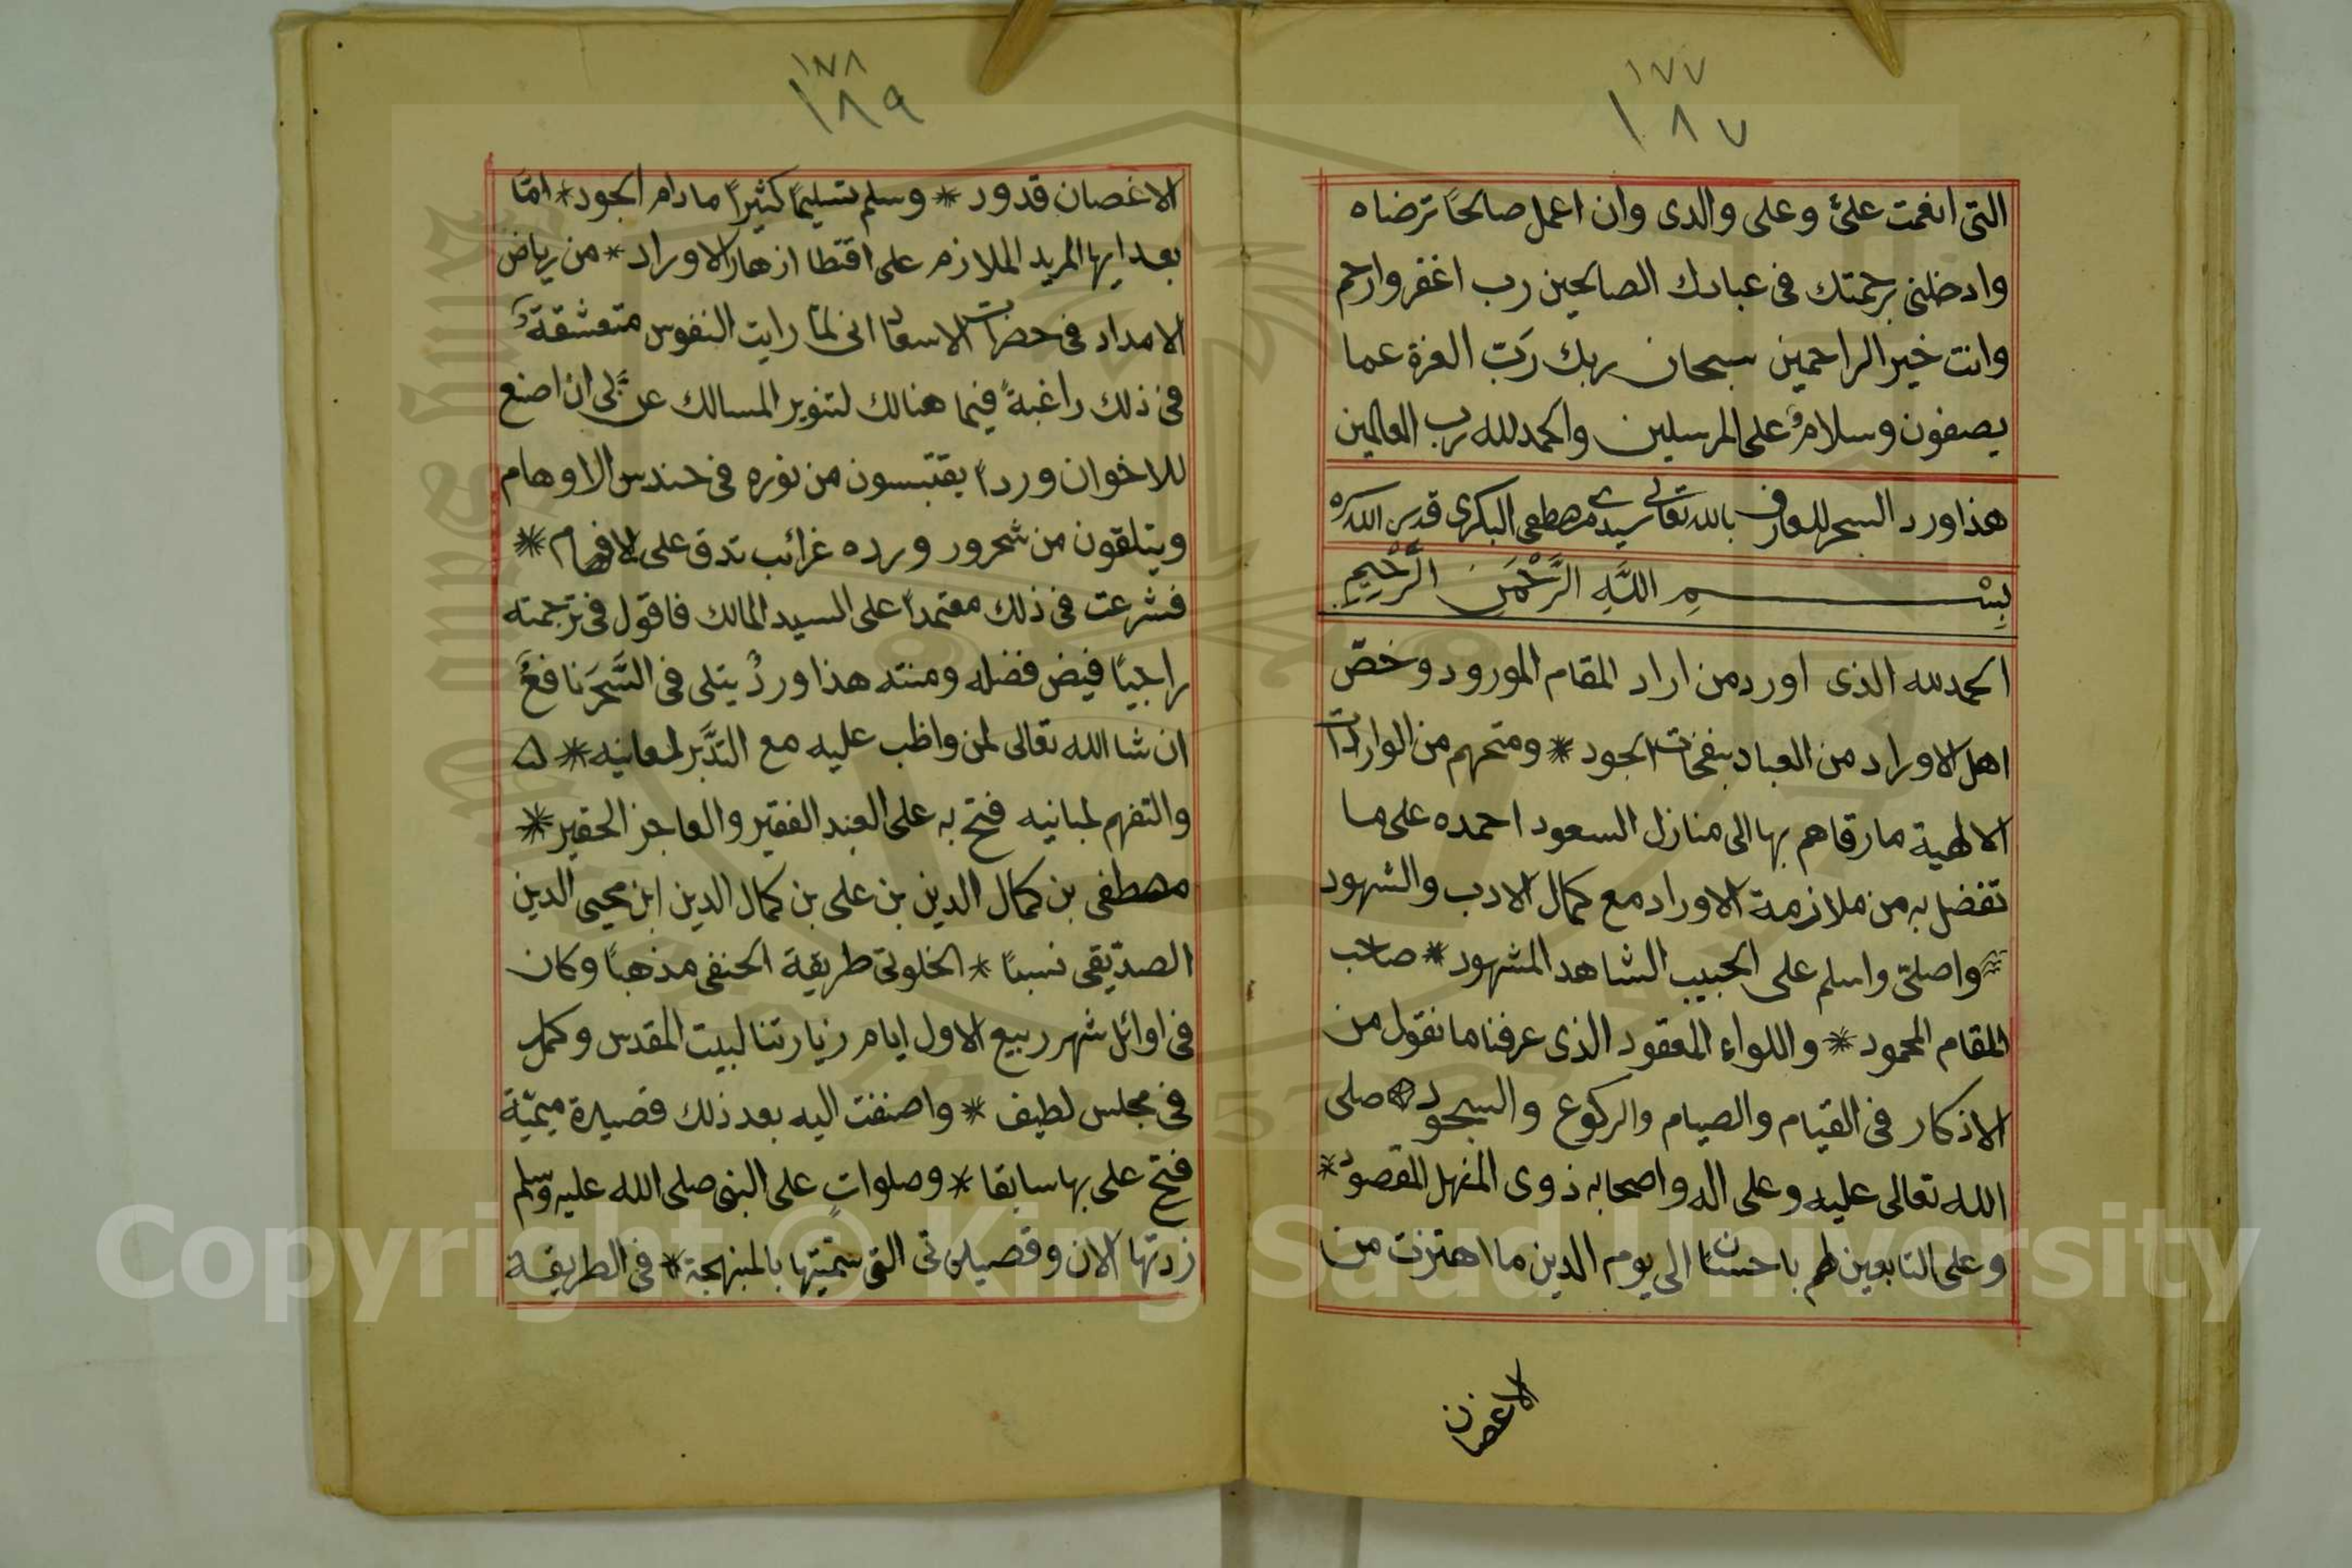 ١٧٧
١٨٧
التى انعمت علىّ وعلى والدى وان اعمل صالحاً ترضاه
وادخلنى برحمتك فى عبادك الصالحين رب اغفر وارحم
وانت خير الراحمين سبحان ربك رَبّ العزة عما
يصفون وسلامٌ على المرسلين والحمد لله رب العالمين
هذا ورد السحر للعارف بالله تعالى سيدى مصطفى البكرى قدس الله سره
بِسْمِ اللَّهِ الرَّحْمَنِ الرَّحِيمِ
الحمد لله الذى اورد من اراد المقام المورود وخصّ
اهل الاوراد من العباد بنفحات الجود * ومنحهم من الواردات
الالهية ما رقاهم بها الى منازل السعود احمده على ما
تفضل به من ملازمة الاوراد مع كمال الادب والشهود
واصلىّ واسلم على الحبيب الشاهد المشهود * صاحب
المقام المحمود * واللواء المعقود الذى عرفنا ما نقول من
الاذكار فى القيام والصيام والركوع والسجود صلى
الله تعالى عليه وعلى اله واصحابه ذوى المنهل المقصود *
وعلى التابعين لهم باحسان الى يوم الدين ما اهتزت من
الاغصان
١٧٨
١٨٩
الاغصان قدود * وسلم تسليمًا كثيرًا ما دام الجود * امّا
بعد ايها المريد الملازم على اقتطا ازهار الاوراد * من رياض
الامداد فى حضرات الاسعاد انى لمّا رايت النفوس متعشقةً
فى ذلك راغبةً فيما هنالك لتنوير المسالك عنّ لى ان اصنع
للاخوان وردًا يقتبسون من نوره فى حندس الاوهام
ويتلقون من شحرور ورده غرائب تدق على الافهام *
فشرعت فى ذلك معتمدًا على السيد المالك فاقول فى ترجمته
راجيًا فيض فضله ومنته هذا وردٌ يتلى فى السَّحَرِ نافعٌ
ان شا الله تعالى لمن واظب عليه مع التدَّبر لمعانيه *
والتفهم لمبانيه فتح به على العبد الفقير والعاجز الحقير *
مصطفى بن كمال الدين بن على بن كمال الدين ابن محيى الدين
الصدّيقى نسبًا * الخلوتى طريقة الحنفى مذهبًا وكان
فى اوائل شهر ربيع الاول ايام زيارتنا لبيت المقدس وكمل
فى مجلس لطيف * واضفت اليه بعد ذلك قصيدة ميميّة
فتح على بها سابقا * وصلواتٍ على النبى صلى الله عليه وسلم
زدتها الان وقصيدتى التى سمّيتها بالمنبهجة * فى الطريقة
Copyright © King Saud University